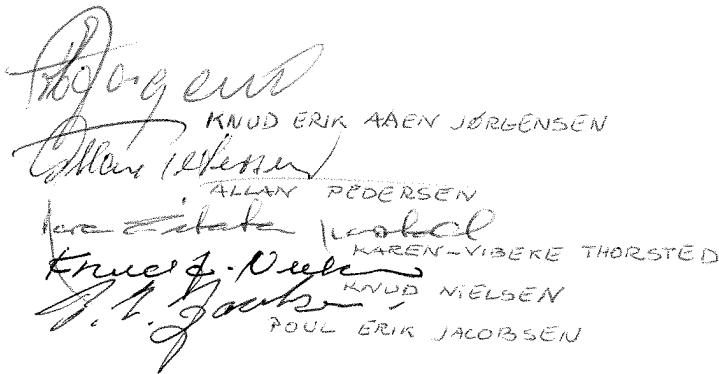 KNUD ERIK AAEN JØRGENSEN
Allan Pedersen
ALLAN PEDERSEN
KAREN-VIBEKE THORSTED
Knud
KNUD NIELSEN
P. E. Jacobsen
POUL ERIK JACOBSEN